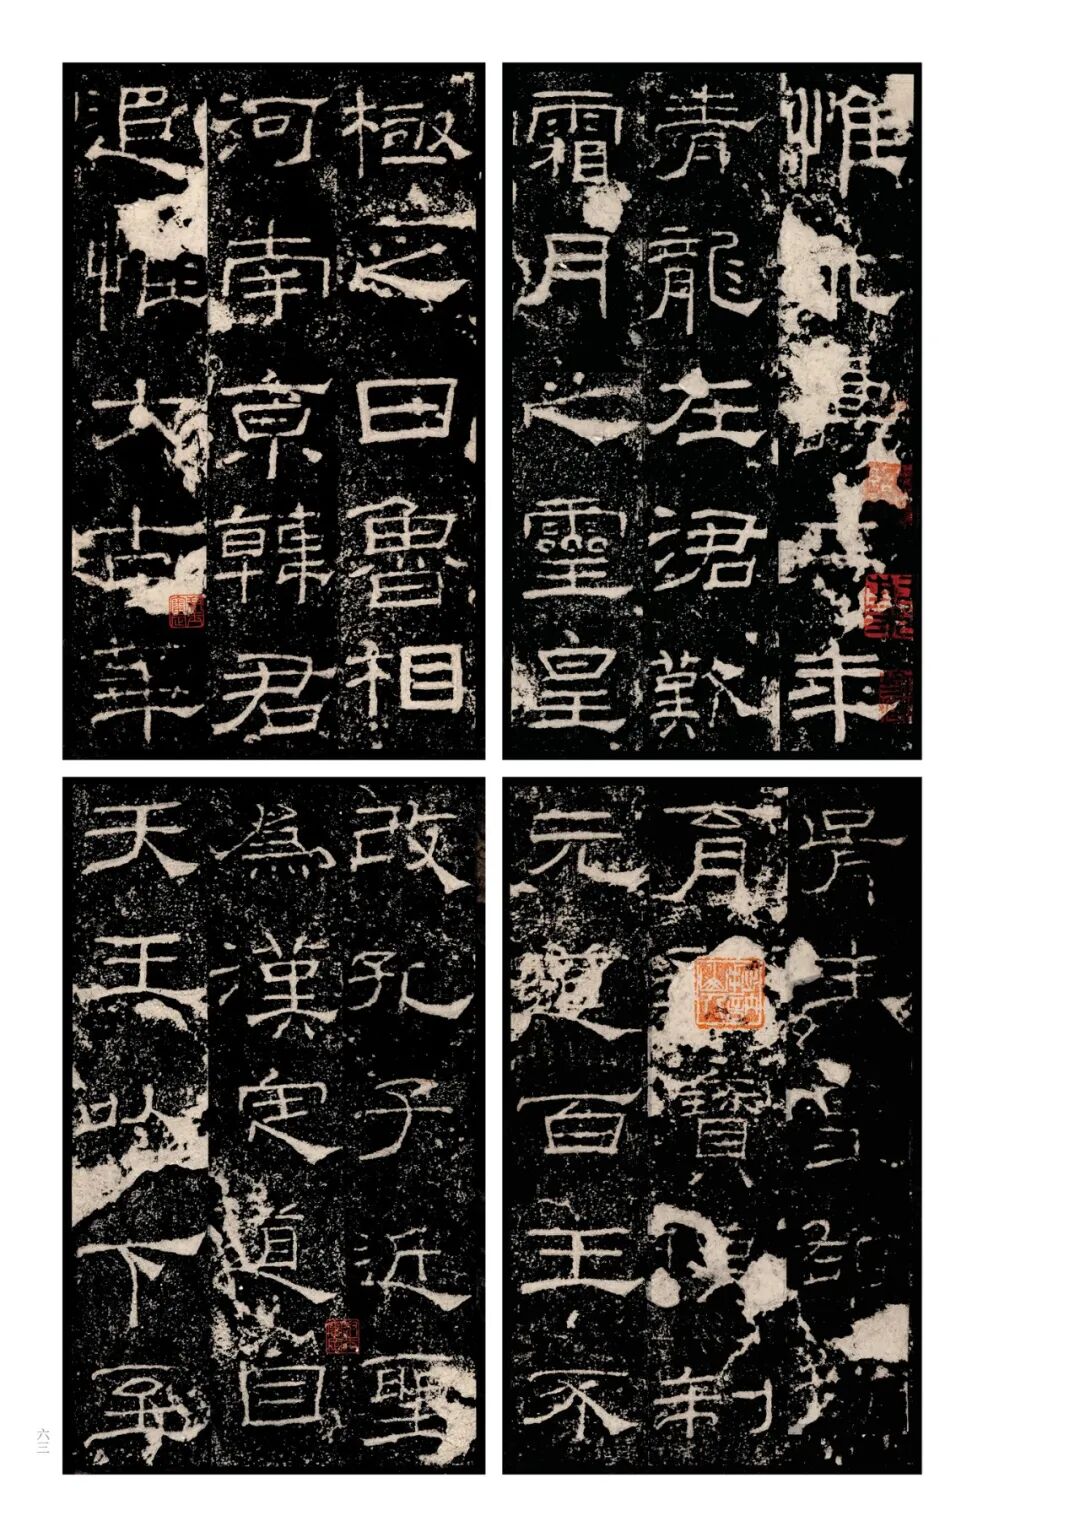 惟永壽二年
青龍在涒歎
霜月之靈皇
極之日魯相
河南京韓君
追惟大古華
胥生
育寶俱制
元道百王不
改孔子近聖
為漢定道自
天王以下至
六三